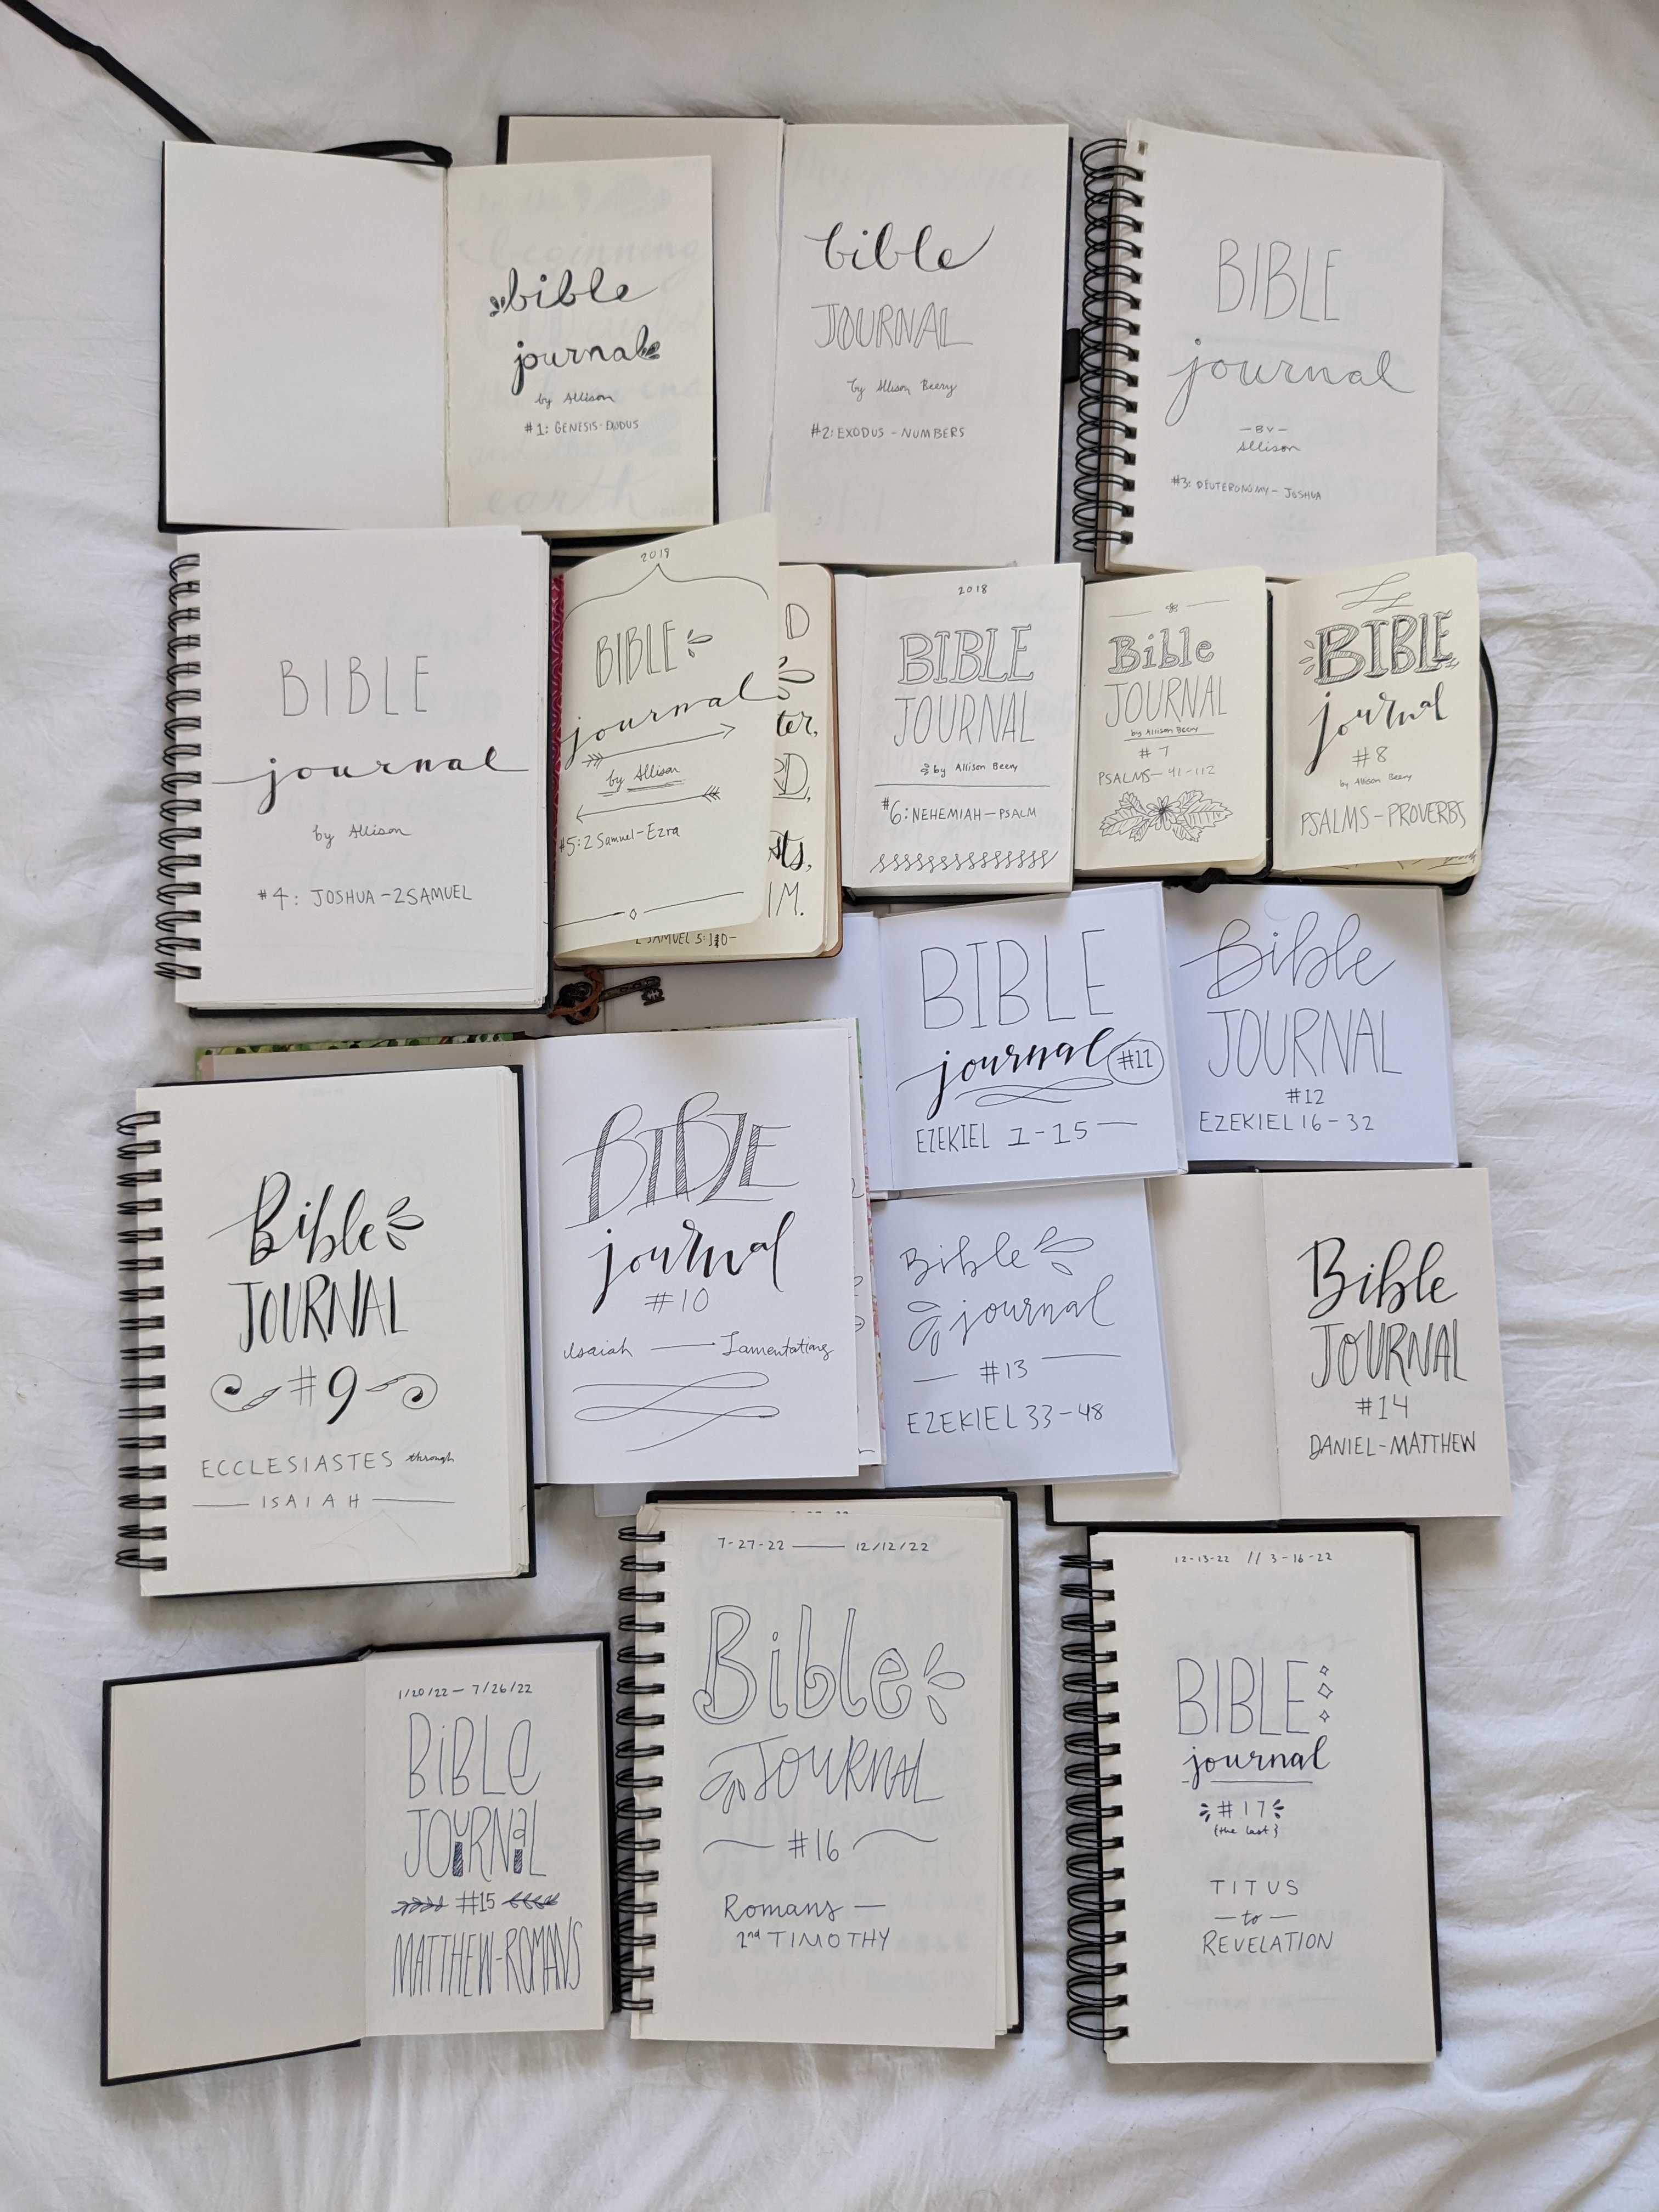 bible
journal
by Allison
#1: GENESIS-EXODUS
bible
JOURNAL
by Allison Beery
#2: EXODUS - NUMBERS
BIBLE
journal
- BY -
Allison
#3: DEUTERONOMY - JOSHUA
BIBLE
journal
by Allison
#4: JOSHUA - 2SAMUEL
2018
BIBLE
journal
by Allison
#5: 2 Samuel-Ezra
D
ter,
D,
ts,
IM.
2018
BIBLE
JOURNAL
by Allison Beery
#6: NEHEMIAH - PSALM
Bible
JOURNAL
by Allison Beery
#7
PSALMS - 41-112
BIBLE
journal
#8
by Allison Beery
PSALMS - PROVERBS
BIBLE
journal #11
EZEKIEL 1-15
Bible
JOURNAL
#12
EZEKIEL 16-32
Bible
JOURNAL
#9
ECCLESIASTES through
ISAIAH
BIBLE
journal
#10
Isaiah — Lamentations
Bible
journal
#13
EZEKIEL 33-48
Bible
JOURNAL
#14
DANIEL-MATTHEW
1/20/22 - 7/26/22
BiBLe
JOURNaL
#15
MATTHEW-ROMANS
7-27-22 — 12/12/22
Bible
JOURNAL
#16
Romans —
2nd TIMOTHY
12-13-22 // 3-16-22
BIBLE
journal
#17
{the last}
TITUS
- to -
REVELATION